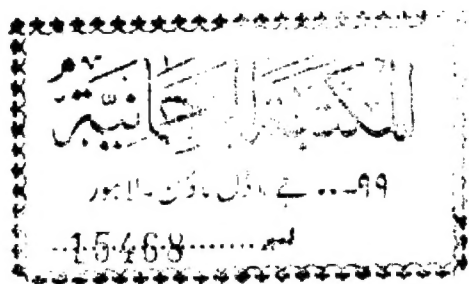 المكتبة الرحمانية
۹۹ــ... جے ماڈل ٹاؤن ـ لاہور
نمبر.....15468.....